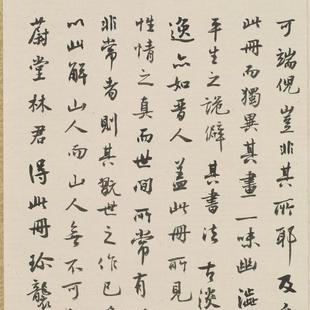 可端倪豈非其所耶及
此冊而獨異其畫一味幽澁
平生之詭僻其書法古淡
逸亦如晋人蓋此冊所見
性情之真而世間所常有
非常者則其翫世之作已
以此解山人而山人無不可
蔚堂林君得此冊珍襲